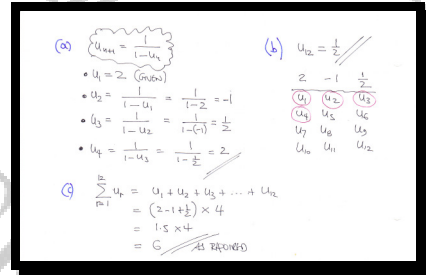 (a) Uₙ₊₁ = 1/(1-Uₙ)
• U₁ = 2 (GIVEN)
• U₂ = 1/(1-U₁) = 1/(1-2) = -1
• U₃ = 1/(1-U₂) = 1/(1-(-1)) = 1/2
• U₄ = 1/(1-U₃) = 1/(1-1/2) = 2
(b) U₁₂ = 1/2
2 -1 1/2
U₁ U₂ U₃
U₄ U₅ U₆
U₇ U₈ U₉
U₁₀ U₁₁ U₁₂
(c) 12 Σ r=1 Uᵣ = U₁ + U₂ + U₃ + ... + U₁₂
= (2-1+1/2) × 4
= 1.5 × 4
= 6 AS REQUIRED